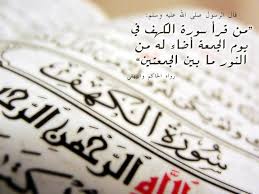 قال الرسول صلى الله عليه وسلم:
"من قرأ سورة الكهف في
يوم الجمعة أضاء له من
النور ما بين الجمعتين"
رواه الحاكم والبيهقي
سورة الكهف
الله الرحمن الرحيم